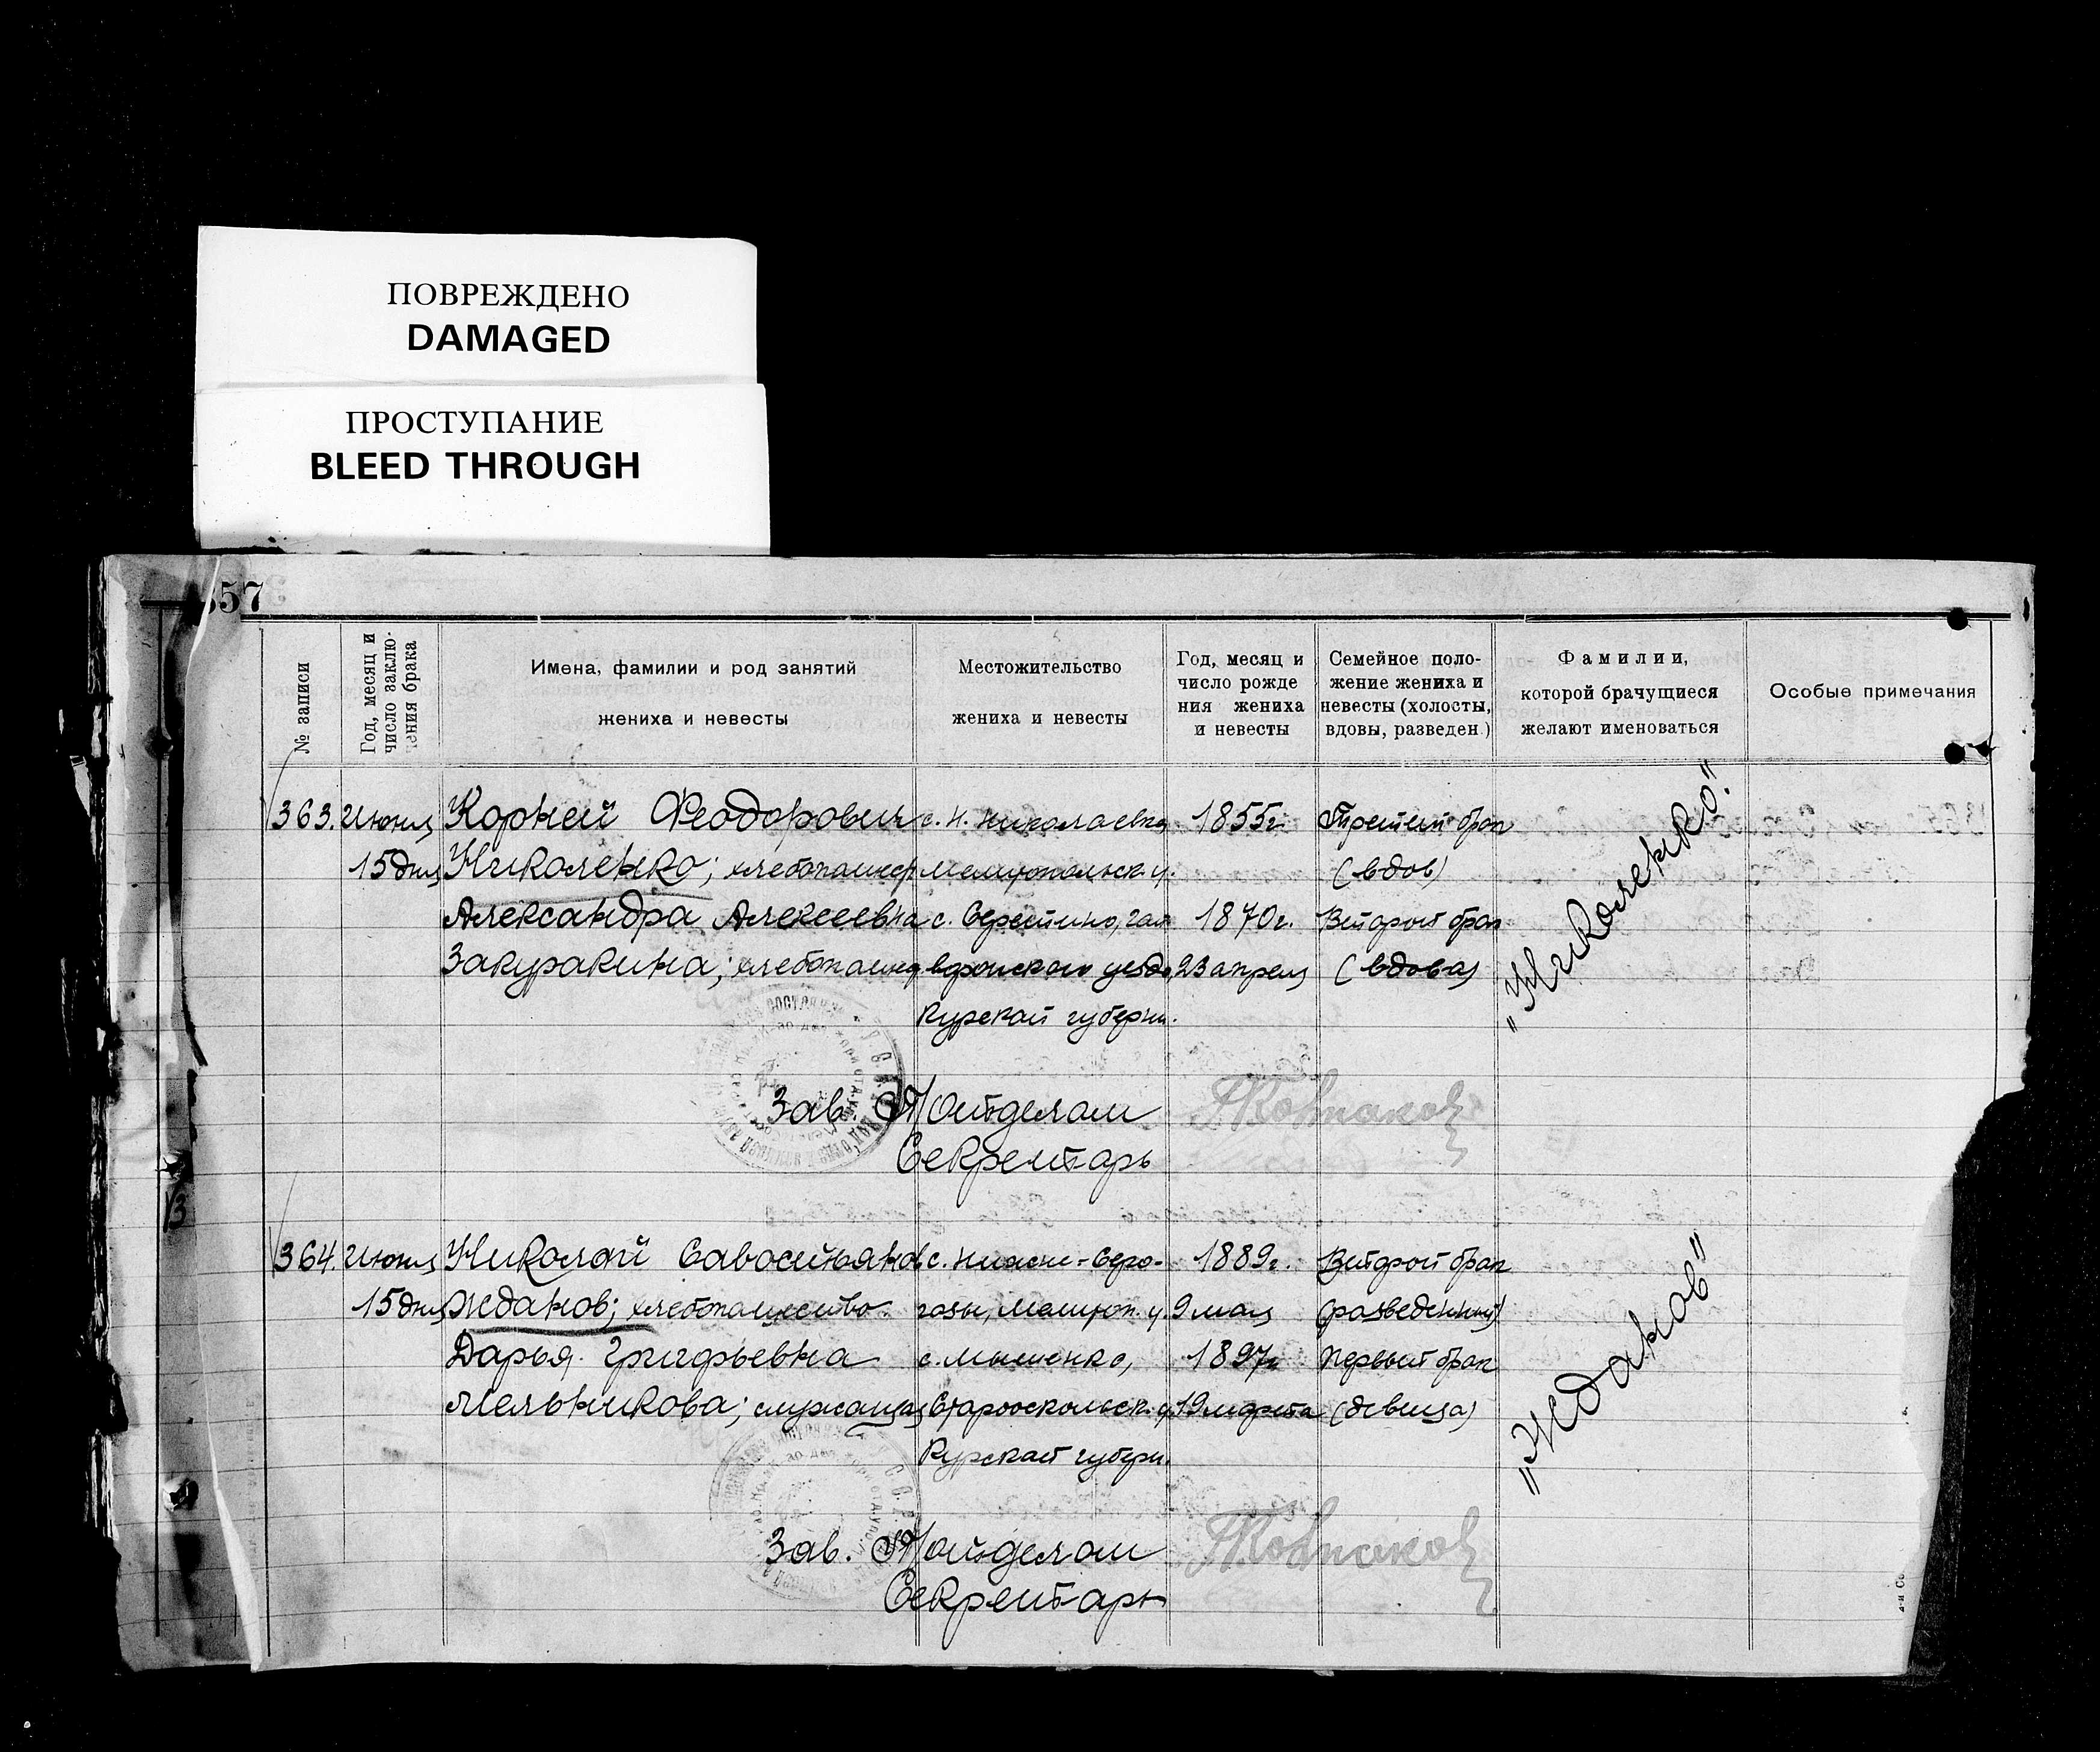 ПОВРЕЖДЕНО
DAMAGED
ПРОСТУПАНИЕ
BLEED THROUGH
57
№ записи
Год, месяц и число заключения брака
Имена, фамилии и род занятий
жениха и невесты
Местожительство
жениха и невесты
Год, месяц и
число рожде
ния жениха
и невесты
Семейное поло-
жение жениха и
невесты (холосты,
вдовы, разведен.)
Фамилии,
которой брачущиеся
желают именоваться
Особые примечания
363. Июня Корней Феодорович с. Н. Николаевка 1855г. Третий брак
15 дня Николенко; хлебопашец Мелитопольск. у. (вдов)
Александра Алексеевна с. 1870г. Второй брак
Закуракина; уезда, 23 апреля (вдова)
Курской губерни.
„Николенко"
Зав. Подъотделом
Секретарь
364. Июня Николай Савостьянов с. Нижне-Серо- 1889г. Второй брак
15 дня Жданов; хлебопашество гозы, Мелитоп. у. 9 мая (разведенный)
Дарья Григорьевна с. 1897г. Первый брак
Мельникова; служащая Старооскольск. у. 19 марта (девица)
Курской губерн.
„Жданов"
Зав. Подъотделом
Секретарь